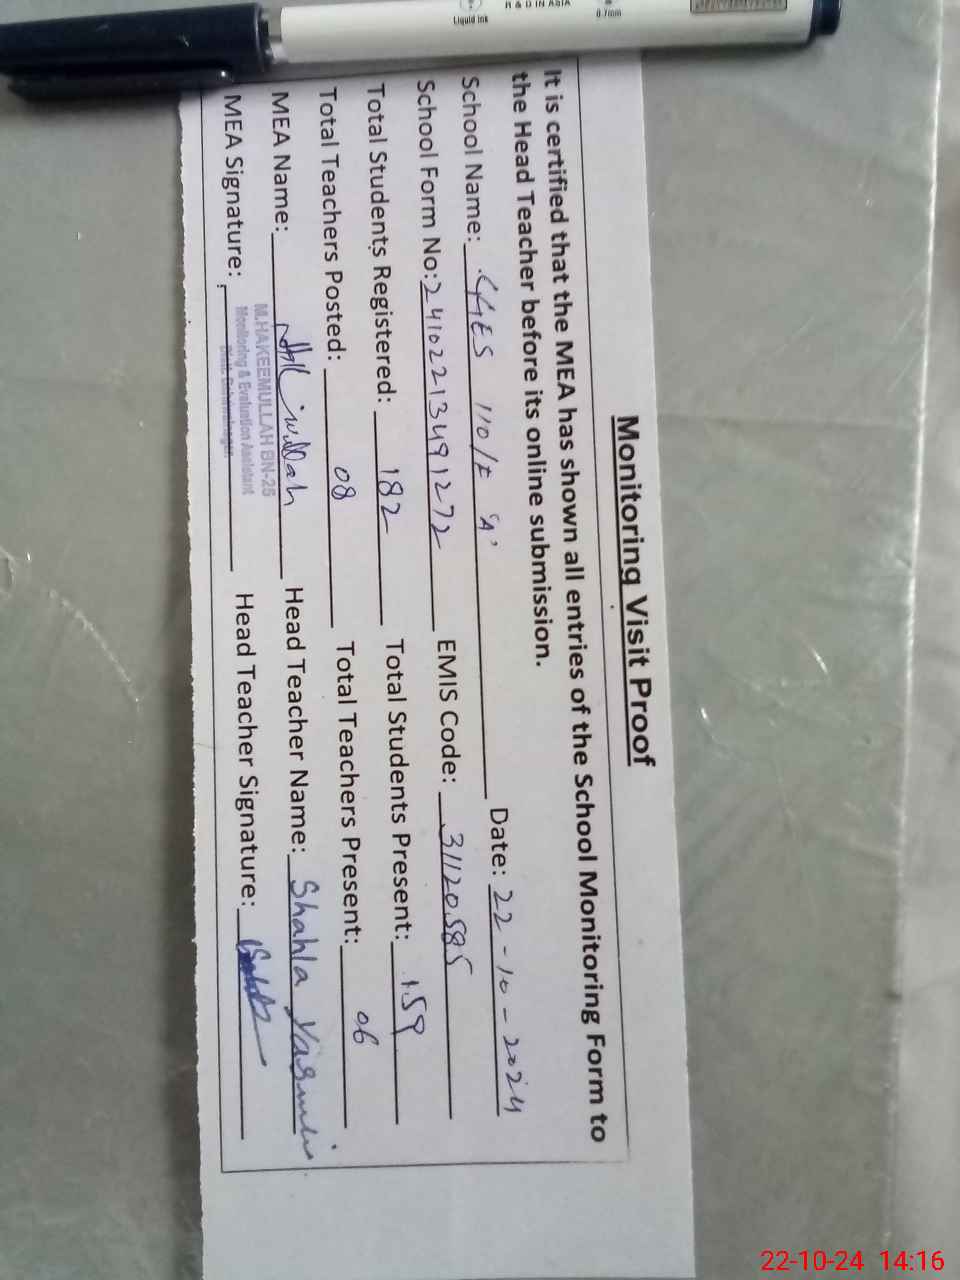 Liquid ink
R & D IN ASIA
0.7mm
Monitoring Visit Proof
It is certified that the MEA has shown all entries of the School Monitoring Form to
the Head Teacher before its online submission.
School Name: GGES 110/F 'A' Date: 22-10-2024
School Form No: 2410221349 1272 EMIS Code: 31120585
Total Students Registered: 182 Total Students Present: 159
Total Teachers Posted: 08 Total Teachers Present: 06
MEA Name: Head Teacher Name: Shahla Yasmin
M.HAKEEMULLAH BN-25
Monitoring & Evaluation Assistant
MEA Signature: Head Teacher Signature:
22-10-24 14:16